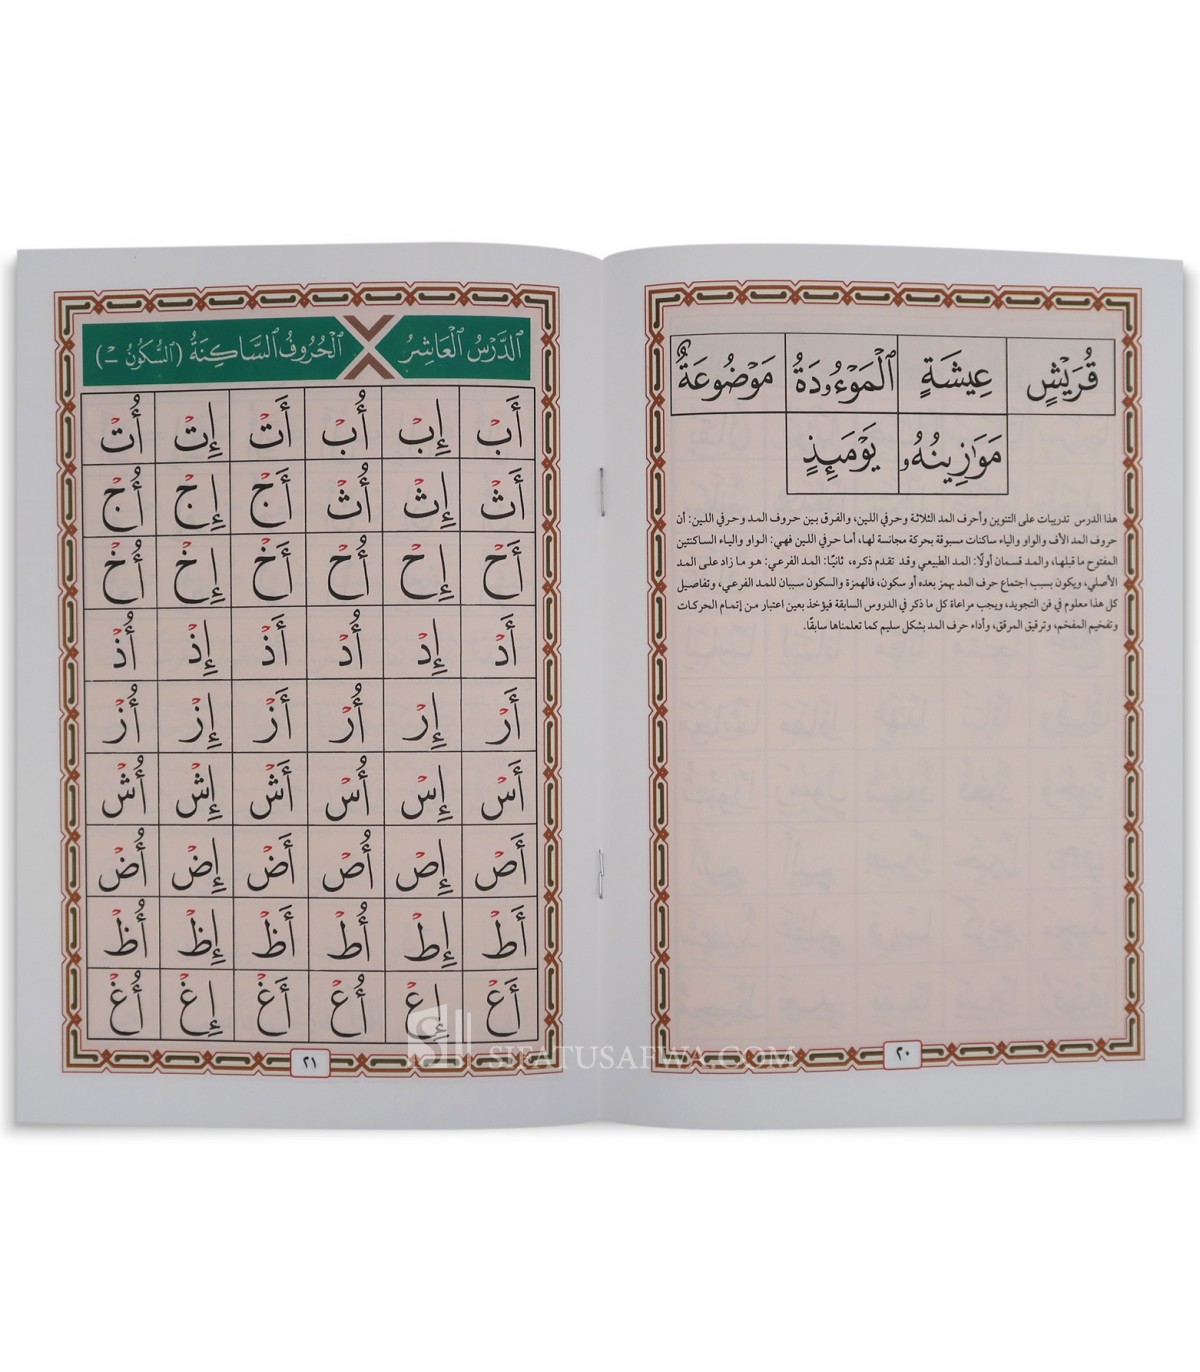 قُرَيْشٍ عِيشَةٍ ٱلْمَوْءُۥدَةُ مَوْضُوعَةٌ
مَوَٰزِينُهُۥ يَوْمَئِذٍ
هذا الدرس تدريبات على التنوين وأحرف المد الثلاثة وحرفي اللين، والفرق بين حروف المد وحرفي اللين: أن
حروف المد الألف والواو والياء ساكنات مسبوقة بحركة مجانسة لها، أما حرفي اللين فهي: الواو والياء الساكنتين
المفتوح ما قبلها، والمد قسمان أولًا: المد الطبيعي وقد تقدم ذكره، ثانيًا: المد الفرعي: هو ما زاد على المد
الأصلي، ويكون بسبب اجتماع حرف المد بهمز بعده أو سكون، فالهمزة والسكون سببان للمد الفرعي، وتفاصيل
كل هذا معلوم في فن التجويد، ويجب مراعاة كل ما ذكر في الدروس السابقة فيؤخذ بعين اعتبار من إتمام الحركات
وتفخيم المفخم، وترقيق المرقق، وأداء حرف المد بشكل سليم كما تعلمناها سابقًا.
٢٠
ٱلدَّرْسُ ٱلْعَاشِرُ ٱلْحُرُوفُ ٱلسَّاكِنَةُ (ٱلسُّكُونُ ـْ)
أَبْ إِبْ أُبْ أَتْ إِتْ أُتْ
أَثْ إِثْ أُثْ أَجْ إِجْ أُجْ
أَحْ إِحْ أُحْ أَخْ إِخْ أُخْ
أَدْ إِدْ أُدْ أَذْ إِذْ أُذْ
أَرْ إِرْ أُرْ أَزْ إِزْ أُزْ
أَسْ إِسْ أُسْ أَشْ إِشْ أُشْ
أَصْ إِصْ أُصْ أَضْ إِضْ أُضْ
أَطْ إِطْ أُطْ أَظْ إِظْ أُظْ
أَعْ إِعْ أُعْ أَغْ إِغْ أُغْ
٢١
SIFATUSAFWA.COM